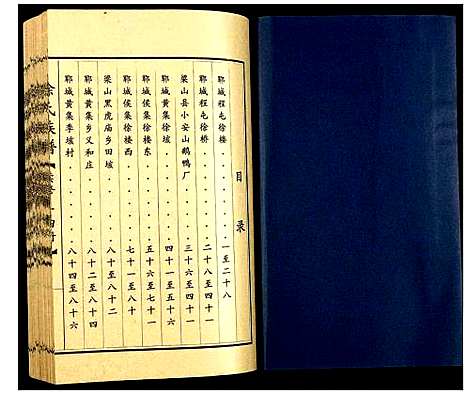 目录
郓城程屯徐楼......一至二十八
郓城程屯徐桥......二十八至四十一
梁山县小安山鹅鸭厂......三十六至四十一
郓城黄集徐垓......四十一至五十六
郓城侯集徐楼东......五十六至七十一
郓城侯集徐楼西......七十一至八十
梁山黑虎庙乡田垓......八十至八十二
郓城黄集乡义和庄......八十二至八十四
郓城黄集李垓村......八十四至八十六
徐氏族谱